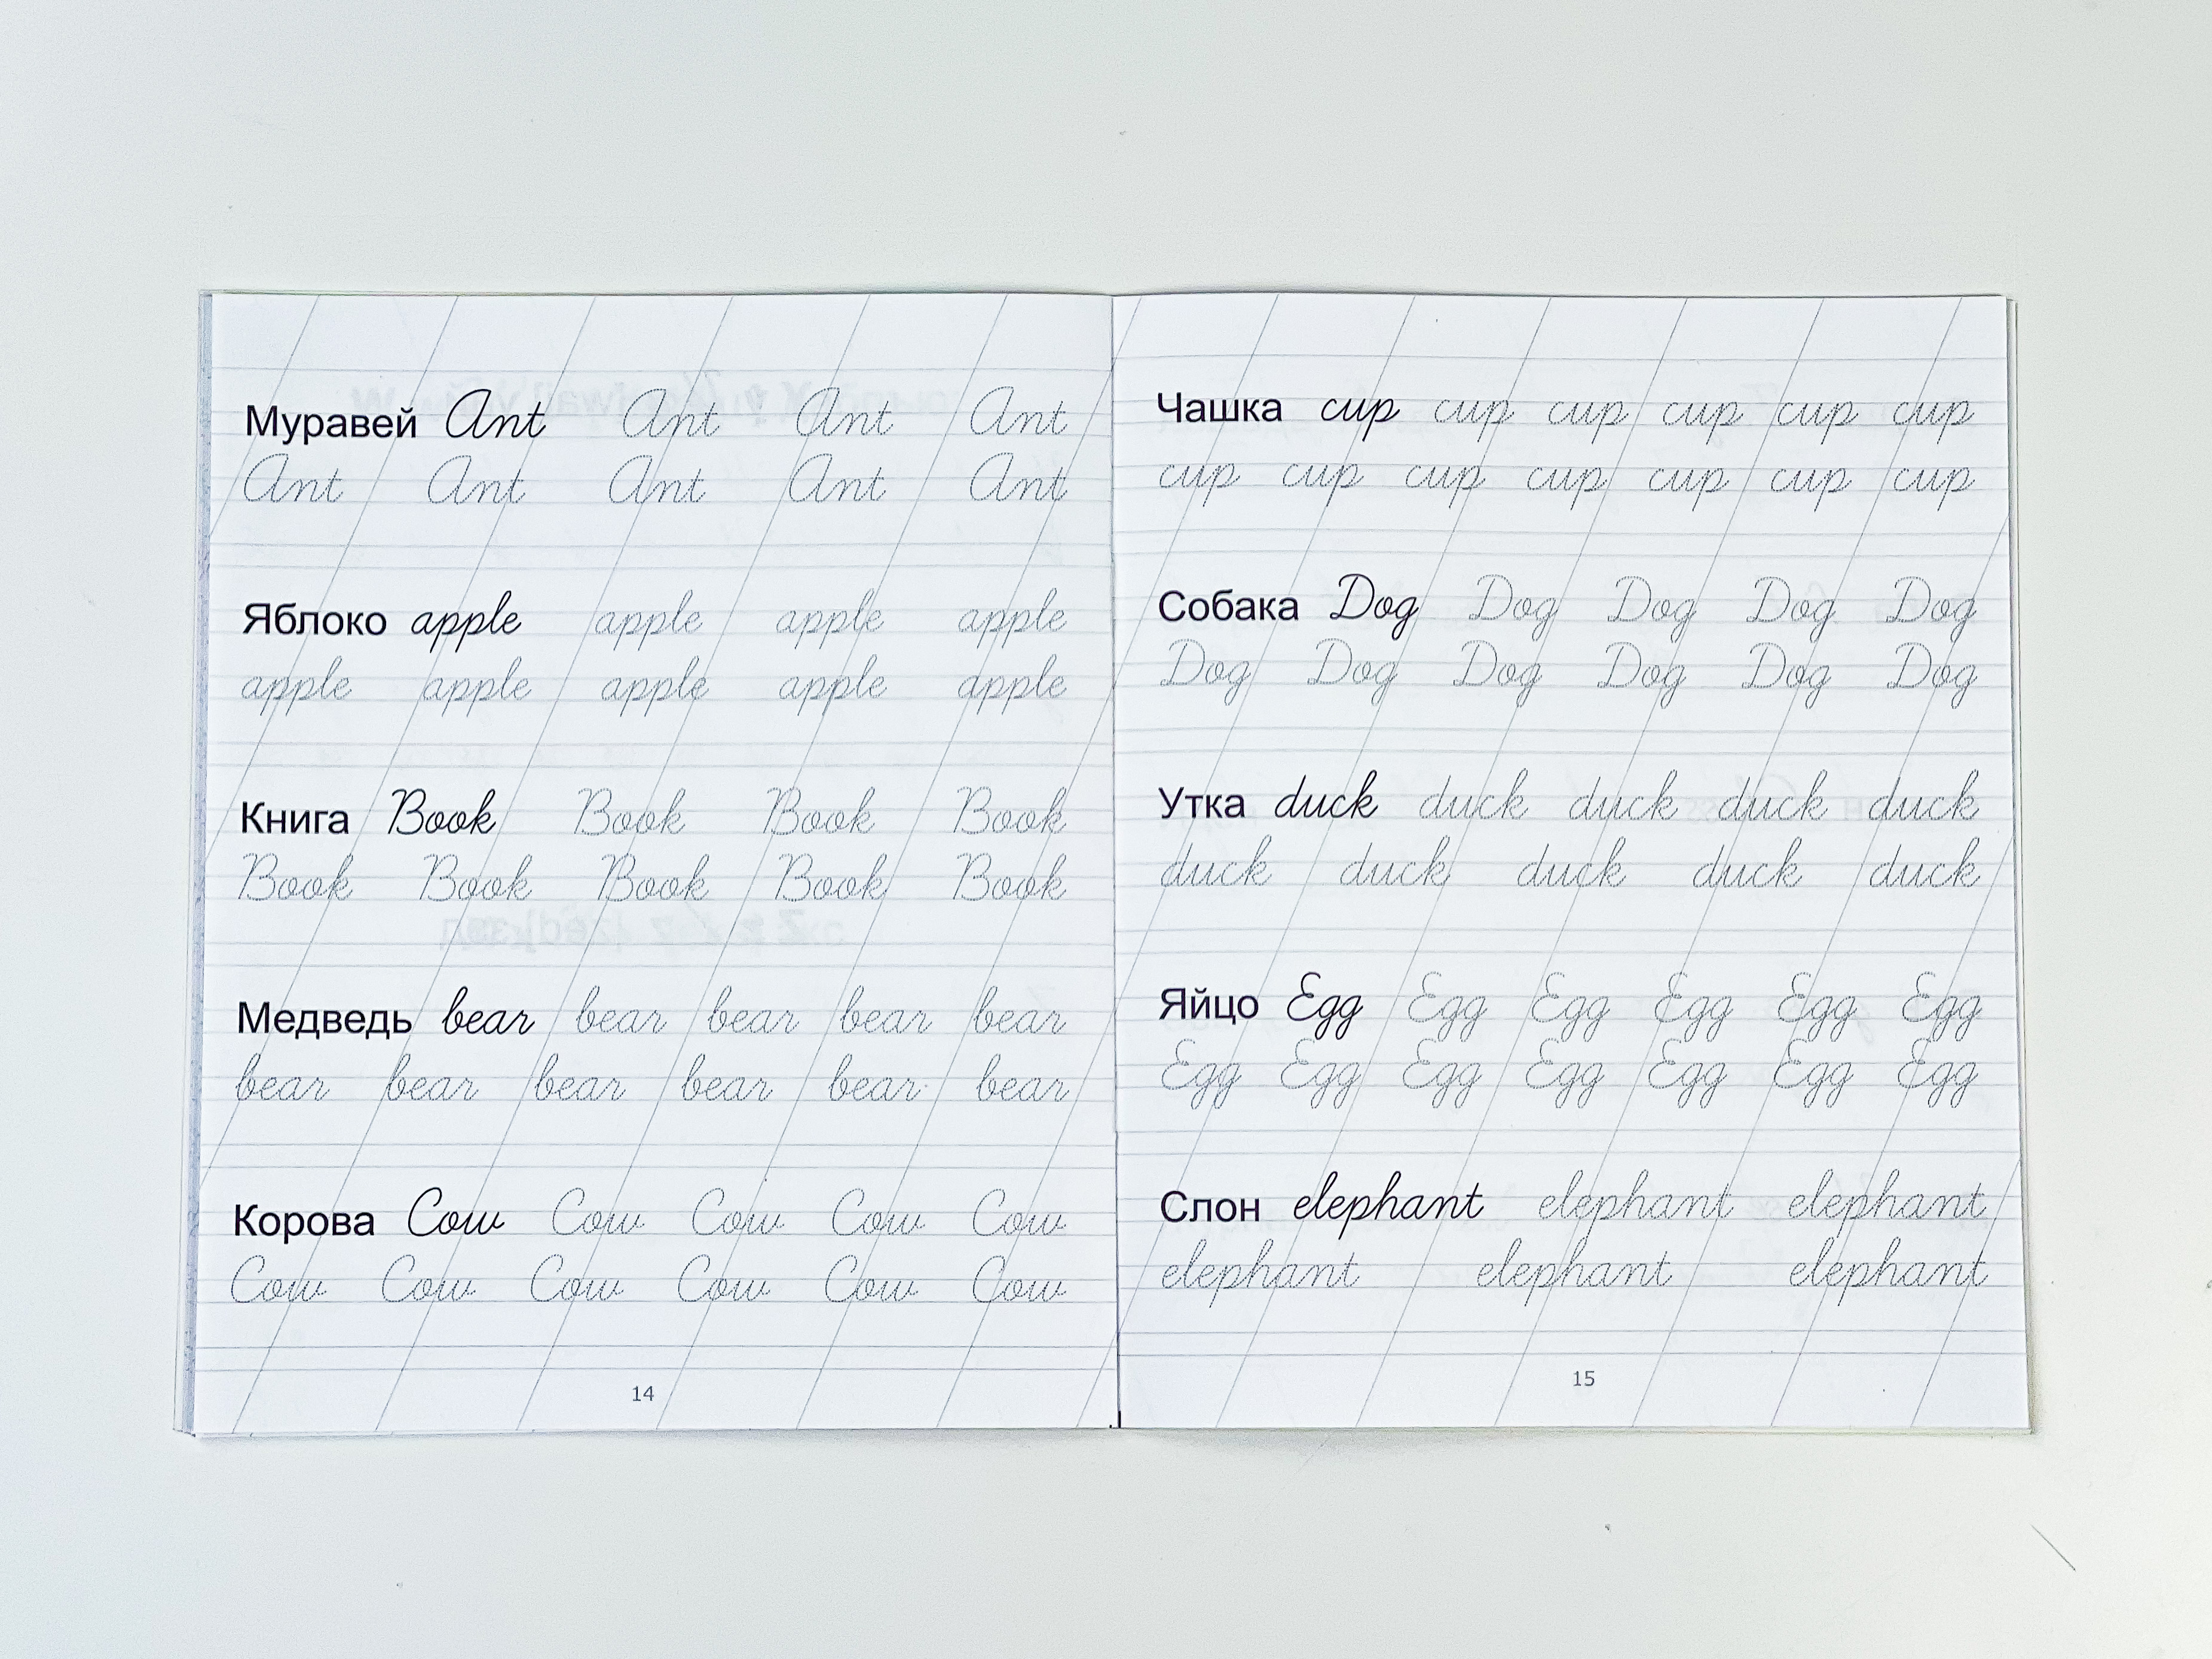 Муравей Ant Ant Ant Ant
Ant Ant Ant Ant Ant
Яблоко apple apple apple apple
apple apple apple apple apple
Книга Book Book Book Book
Book Book Book Book Book
Медведь bear bear bear bear bear
bear bear bear bear bear bear
Корова Cow Cow Cow Cow Cow
Cow Cow Cow Cow Cow Cow
14
Чашка cup cup cup cup cup cup
cup cup cup cup cup cup cup
Собака Dog Dog Dog Dog Dog
Dog Dog Dog Dog Dog Dog
Утка duck duck duck duck duck
duck duck duck duck duck
Яйцо Egg Egg Egg Egg Egg Egg
Egg Egg Egg Egg Egg Egg Egg
Слон elephant elephant elephant
elephant elephant elephant
15